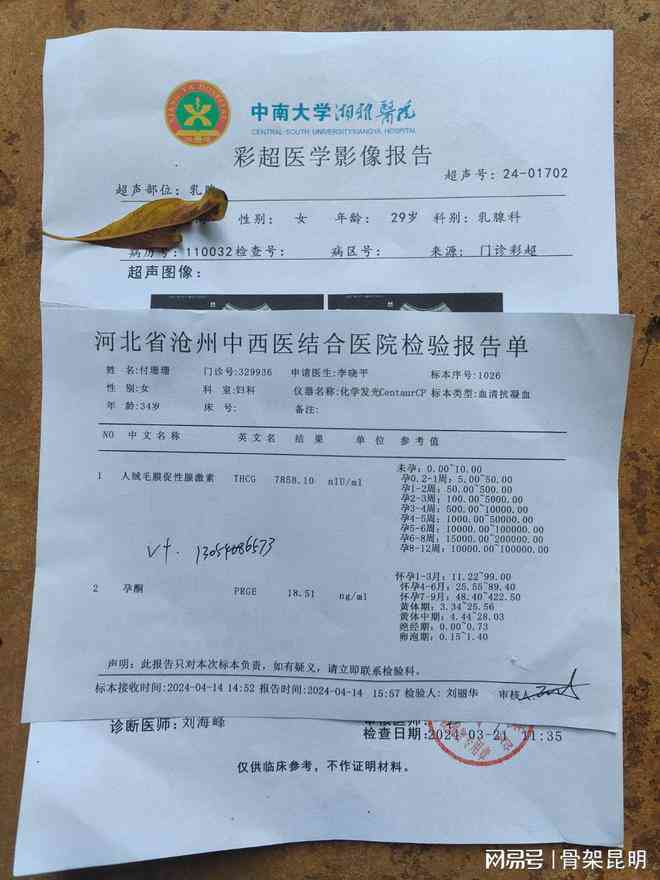 XIANG YA HOSPITAL
中南大学湘雅醫院
CENTRAL-SOUTH UNIVERSITYXIANGYA HOSPITAL
彩超医学影像报告
超声号: 24-01702
超声部位: 乳
性别: 女 年龄: 29岁 科别: 乳腺科
病历号: 110032 检查号: 病区号: 来源: 门诊彩超
超声图像:
河北省沧州中西医结合医院检验报告单
姓 名:付珊珊 门诊号:329936 申请医生:李晓平 标本序号:1026
性 别:女 科 室:妇科 仪器名称:化学发光CentaurCP 标本类型:血清抗凝血
年 龄:34岁 床 号: 备注:
NO 中文名称 英文名 结果 单位 参考值
1 人绒毛膜促性腺激素 THCG 7858.10 mIU/ml 未孕: 0.00~10.00
孕0.2-1周: 5.00~50.00
孕1-2周: 50.00~500.00
孕2-3周: 100.00~5000.00
孕3-4周: 500.00~10000.00
孕4-5周: 1000.00~50000.00
孕5-6周: 10000.00~100000.00
孕6-8周: 15000.00~200000.00
孕8-12周: 10000.00~100000.00
2 孕酮 PRGE 18.51 ng/ml 怀孕1-3月: 11.22~99.00
怀孕4-6月: 25.55~89.40
怀孕7-9月: 48.40~422.50
黄体期: 3.34~25.56
黄体中期: 4.44~28.03
绝经期: 0.00~0.73
卵泡期: 0.15~1.40
声明: 此报告只对本次标本负责, 如有疑义, 请立即联系检验科。
标本接收时间:2024-04-14 14:52 报告时间:2024-04-14 15:57 检验人: 刘丽华 审核人
诊断医师: 刘海峰 审核医师:
检查日期:2024-03-21 11:35
仅供临床参考, 不作证明材料。
网易号 | 骨架昆明